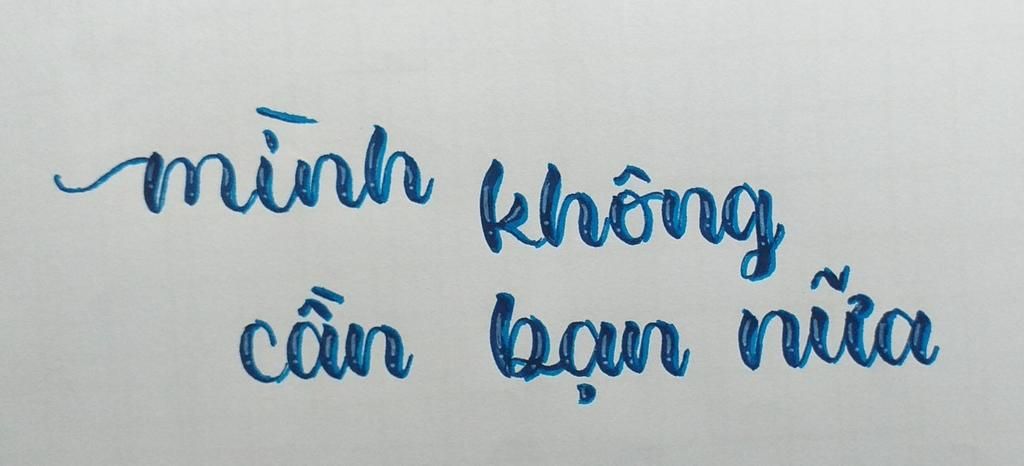 mình không
cần bạn nữa